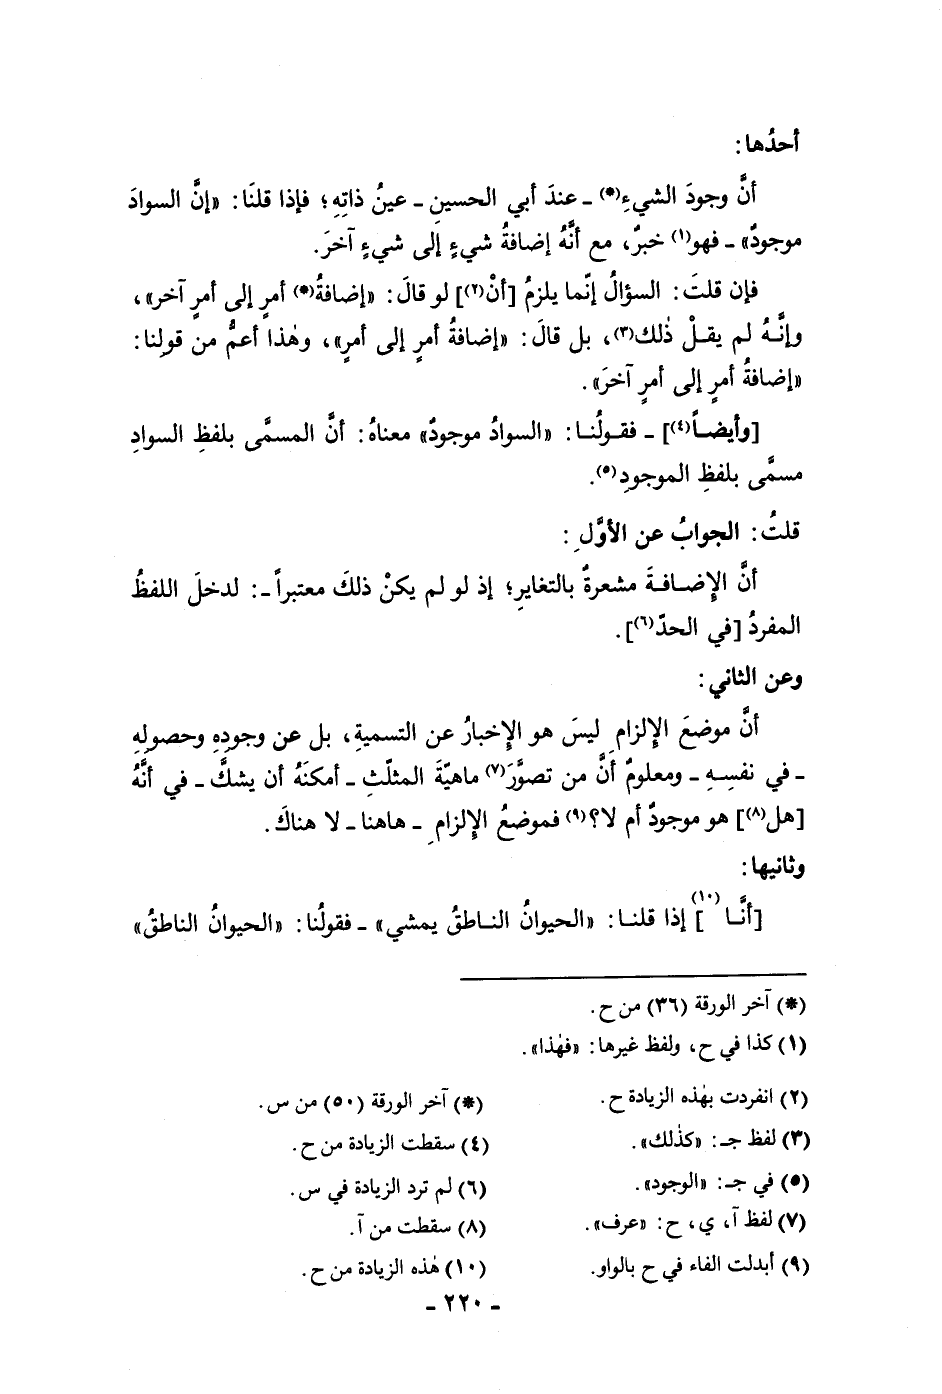 أحدُها:
أنَّ وجودَ الشيءِ(*) ـ عندَ أبي الحسينِ ـ عينُ ذاتِهِ؛ فإذا قلنَا: «إنَّ السوادَ
موجودٌ» ـ فهو(١) خبرٌ، مع أنَّهُ إضافةُ شيءٍ إلى شيءٍ آخرَ.
فإن قلتَ: السؤالُ إنّما يلزمُ [أنْ(٢)] لو قالَ: «إضافةُ(*) أمرٍ إلى أمرٍ آخر»،
وإنَّهُ لم يقلْ ذٰلك(٣)، بل قالَ: «إضافةُ أمرٍ إلى أمرٍ»، وهٰذا أعمُّ من قولِنا:
«إضافةُ أمرٍ إلى أمرٍ آخرَ».
[وأيضاً(٤)] ـ فقولُنا: «السوادُ موجودٌ» معناهُ: أنَّ المسمَّى بلفظِ السوادِ
مسمَّى بلفظِ الموجودِ(٥).
قلتُ: الجوابُ عن الأوَّلِ:
أنَّ الإِضافةَ مشعرةٌ بالتغايرِ؛ إذ لو لم يكنْ ذلكَ معتبراً ـ: لدخلَ اللفظُ
المفردُ [في الحدّ(٦)].
وعن الثاني:
أنَّ موضعَ الإِلزامِ ليسَ هو الإِخبارُ عن التسميةِ، بل عن وجودِهِ وحصولِهِ
ـ في نفسِهِ ـ ومعلومٌ أنَّ من تصوَّرَ(٧) ماهيّةَ المثلّثِ ـ أمكنَهُ أن يشكَّ ـ في أنَّهُ
[هل(٨)] هو موجودٌ أم لا؟(٩) فموضعُ الإِلزامِ ـ هاهنا ـ لا هناكَ.
وثانيها:
[أنَّا(١٠)] إذا قلنا: «الحيوانُ الناطقُ يمشي» ـ فقولُنا: «الحيوانُ الناطقُ»
(*) آخر الورقة (٣٦) من ح.
(١) كذا في ح، ولفظ غيرها: «فهٰذا».
(٢) انفردت بهٰذه الزيادة ح. (*) آخر الورقة (٥٠) من س.
(٣) لفظ جـ: «كذٰلك». (٤) سقطت الزيادة من ح.
(٥) في جـ: «الوجود». (٦) لم ترد الزيادة في س.
(٧) لفظ آ، ي، ح: «عرف». (٨) سقطت من آ.
(٩) أبدلت الفاء في ح بالواو. (١٠) هٰذه الزيادة من ح.
ـ ٢٢٠ ـ